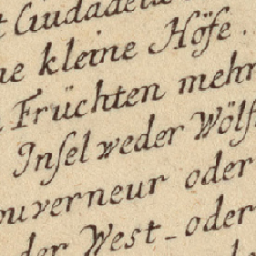 t Ciudadela
ne kleine Höfe.
Früchten mehr
Insel weder Wölf
ouverneur oder
der West-oder